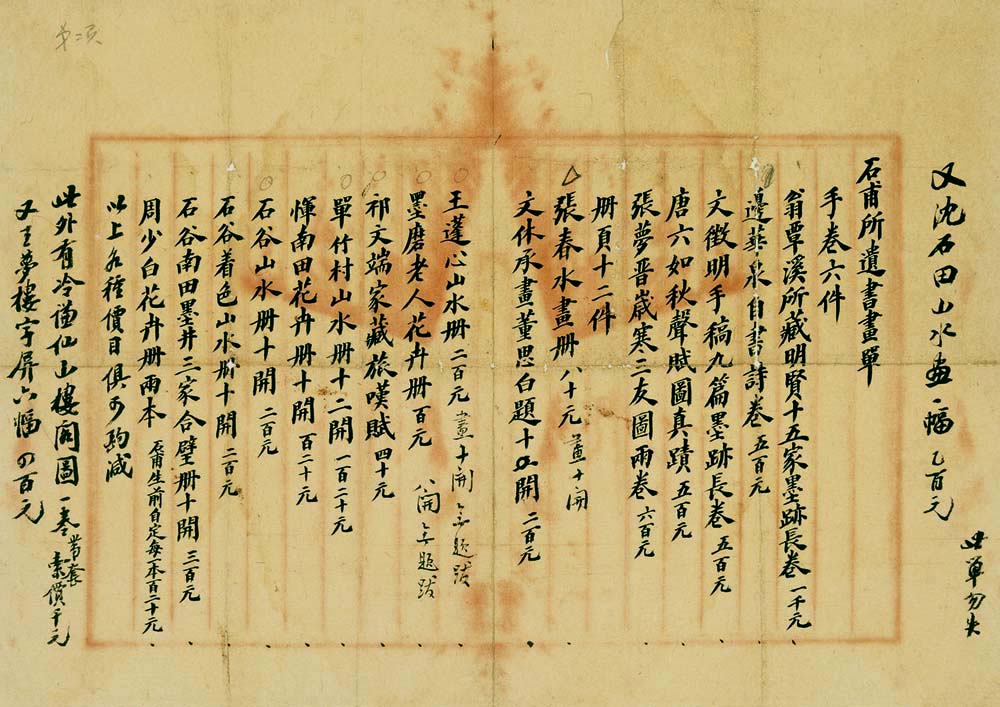 第二頁
又沈石田山水画一幅 乙百元
此單勿失
石甫所遺書畫單
手卷六件
翁覃溪所藏明賢十五家墨跡長卷 一千元
邊華泉自書詩卷 五百元
文徵明手稿九篇墨跡長卷 五百元
唐六如秋聲賦圖真蹟 五百元
張夢晋歲寒三友圖兩卷 六百元
册頁十二件
張春水畫册 八十元 畫十開
文休承畫董思白題十五開 二百元
王蓬心山水册 二百元 畫十開 無題跋
墨磨老人花卉册 百元 八開 無題跋
祁文端家藏旅嘆賦 四十元
單竹村山水册十二開 一百二十元
惲南田花卉册十開 百二十元
石谷山水册十開 二百元
石谷着色山水册十開 二百元
石谷南田墨井三家合璧册十開 三百元
周少白花卉册兩本 石甫生前自定每本百二十元
以上各種價目俱可酌减
此外有冷謙仙山樓閣圖一卷 带套 索價千元
又王夢樓字屏六幅 四百元